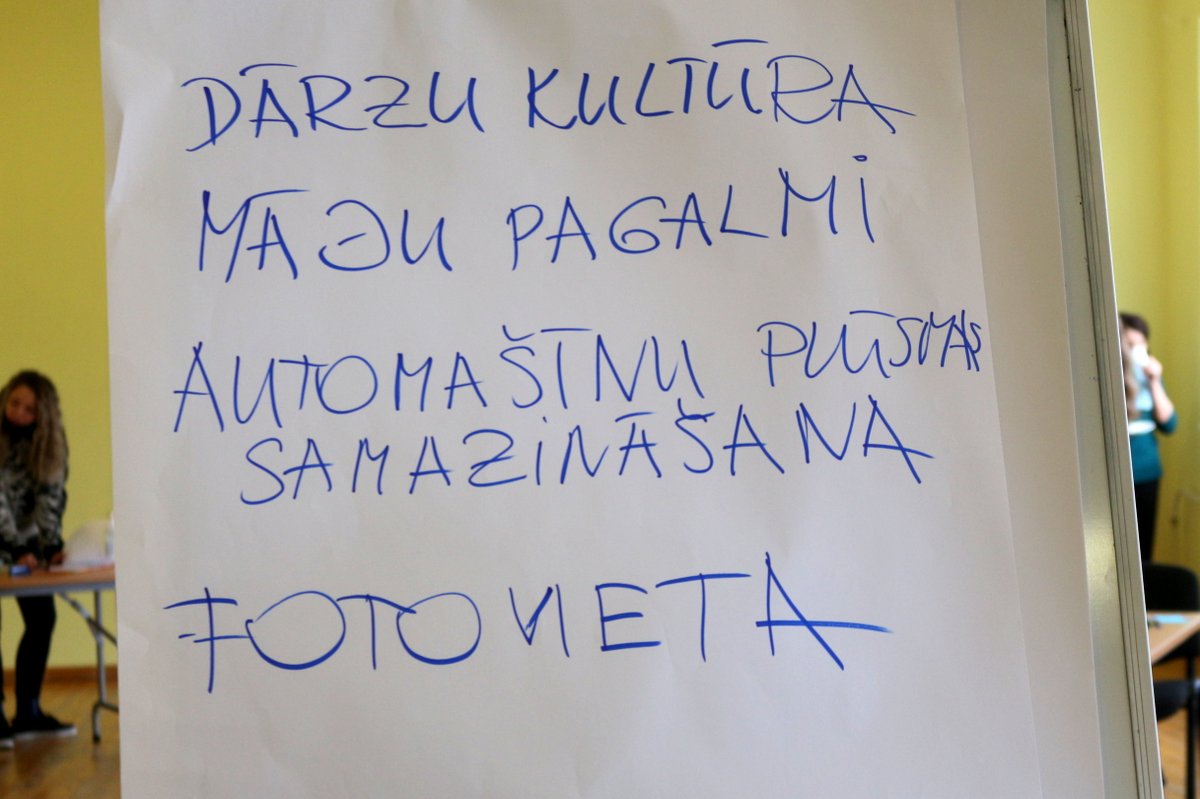 DĀRZU KULTŪRA
MĀJU PAGALMI
AUTOMAŠĪNU PLŪSMAS
SAMAZINĀŠANA
FOTOVIETA